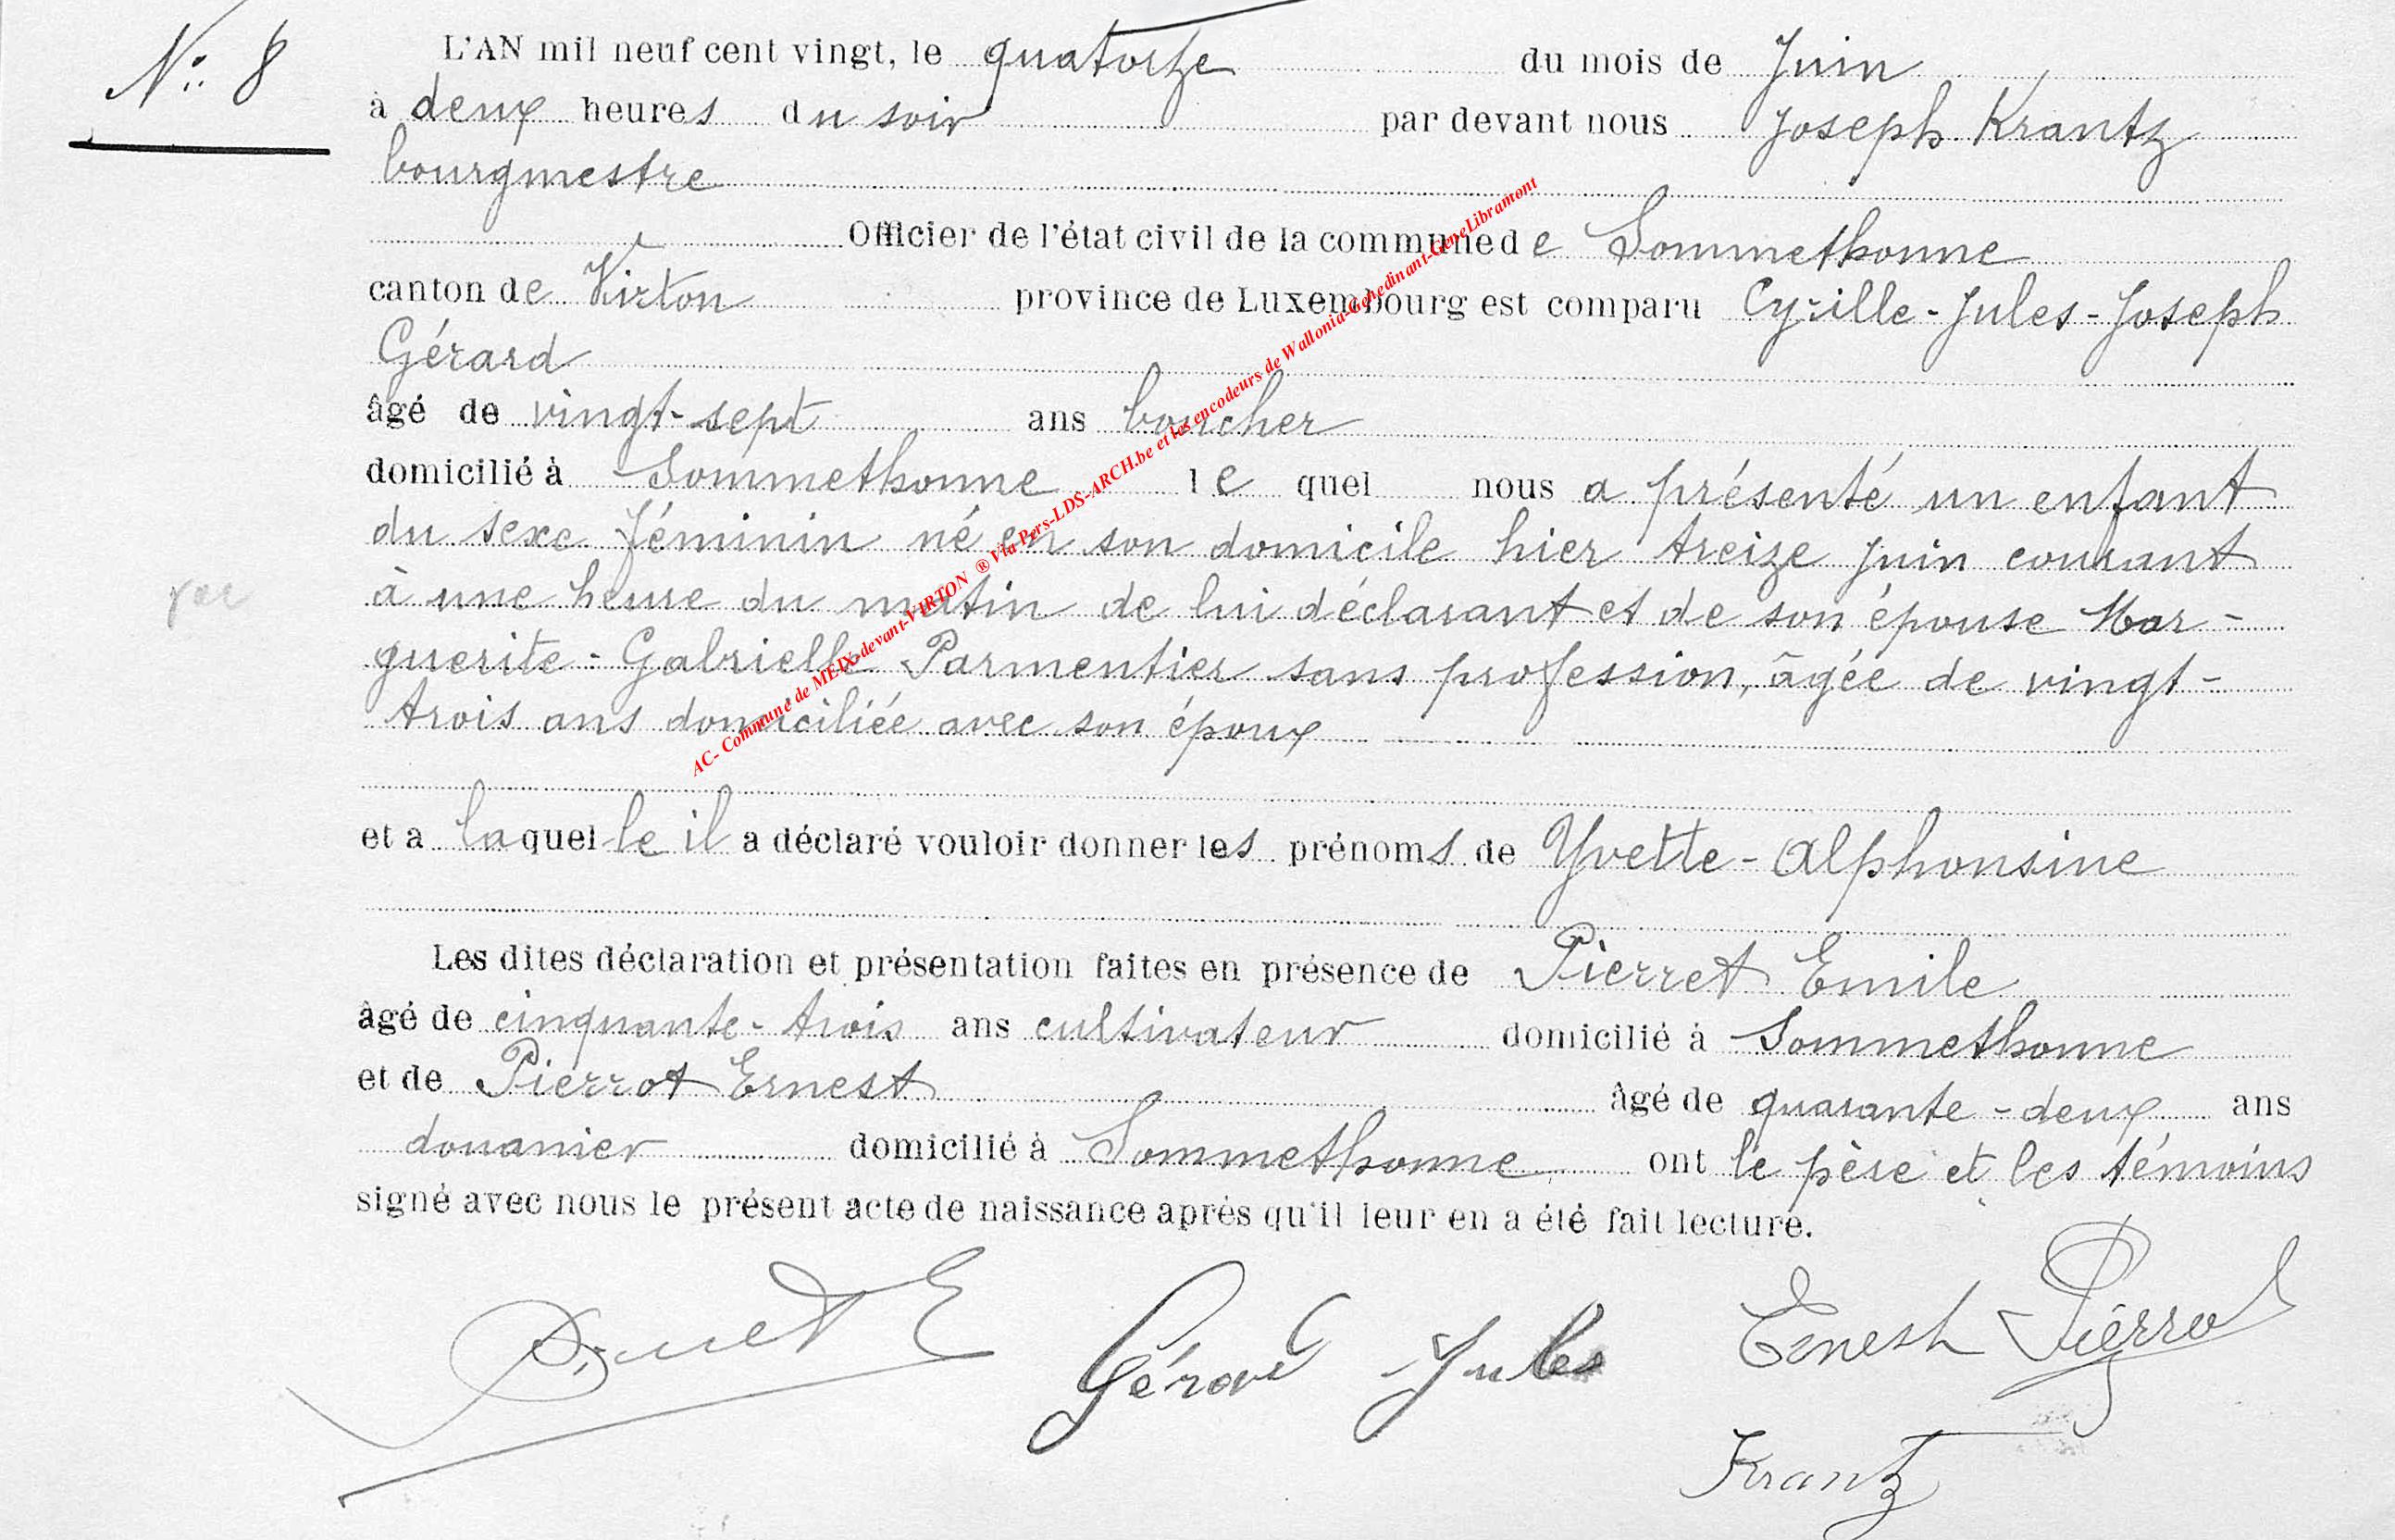 N° 8
L'AN mil neuf cent vingt, le quatorze du mois de Juin
à deux heures du soir par devant nous Joseph Krantz
bourgmestre
Officier de l'état civil de la commune de Sommethonne
canton de Virton province de Luxembourg est comparu Cyrille-Jules-Joseph
Gérard
âgé de vingt-sept ans boucher
domicilié à Sommethonne le quel nous a présenté un enfant
du sexe féminin né en son domicile hier treize juin courant
à une heure du matin de lui déclarant et de son épouse Mar-
guerite-Gabrielle Parmentier sans profession, âgée de vingt-
trois ans domiciliée avec son époux
et a laquelle il a déclaré vouloir donner les prénoms de Yvette-Alphonsine
Les dites déclaration et présentation faites en présence de Pierret Emile
âgé de cinquante-trois ans cultivateur domicilié à Sommethonne
et de Pierrot Ernest âgé de quarante-deux ans
douanier domicilié à Sommethonne ont le père et les témoins
signé avec nous le présent acte de naissance après qu'il leur en a été fait lecture.
Gérard Jules
Ernest Pierrot
Krantz
AC- Commune de MEIX-devant-VIRTON ® Via Pers-LDS-ARCH.be et les encodeurs de Wallonia-Genedinant-GeneLibramont